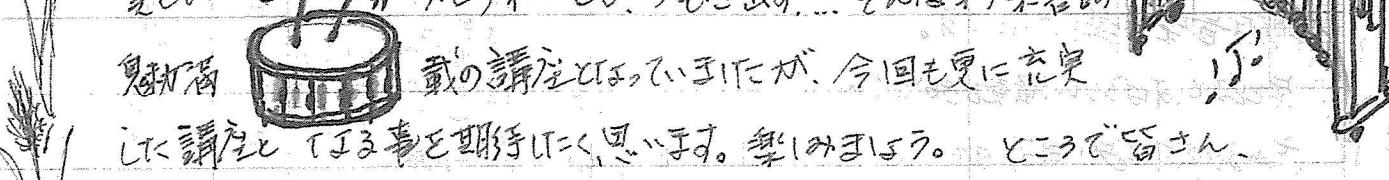 魅力満載の講座となっていましたが、今回も更に充実
した講座となる事を期待したく思います。楽しみましょう。 ところで皆さん、